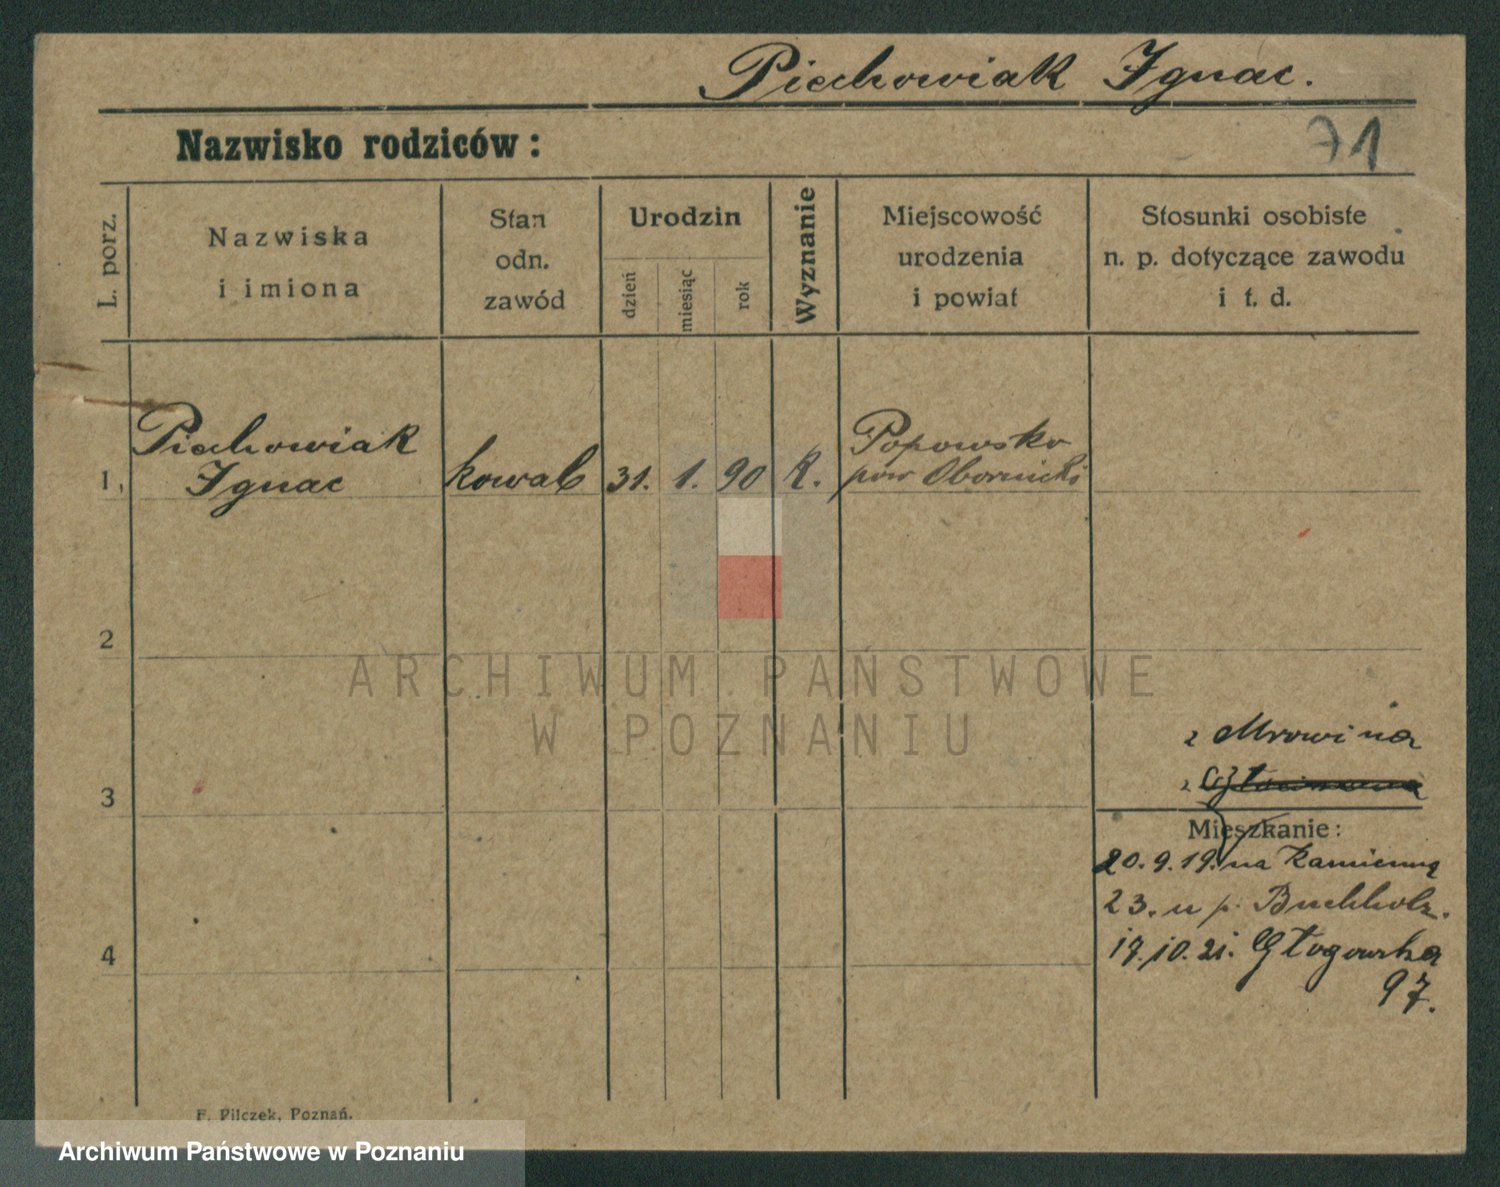 Piechowiak Ignac.
71
Nazwisko rodziców:
L. porz.
Nazwiska
i imiona
Stan
odn.
zawód
Urodzin
dzień
miesiąc
rok
Wyznanie
Miejscowość
urodzenia
i powiat
Stosunki osobiste
n. p. dotyczące zawodu
i t. d.
1,
Piechowiak
Ignac
kowal
31.
1.
90
K.
Popowsko
pow Obornicki
2
3
4
ARCHIWUM PAŃSTWOWE
W POZNANIU
z Mrowina
z
Mieszkanie:
20.9.19. na Kamienną
23. u p. Buchholz.
17.10.21. Głogowska
97.
F. Pilczek, Poznań.
Archiwum Państwowe w Poznaniu